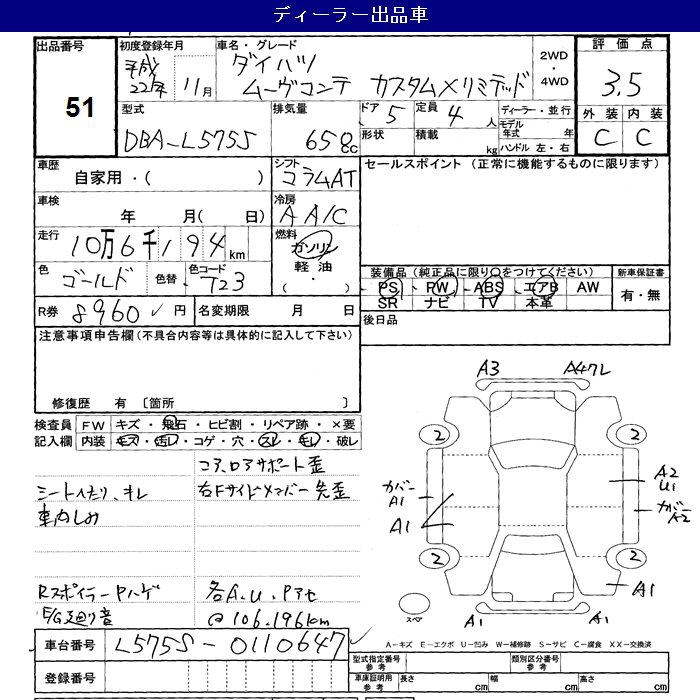 ディーラー出品車
出品番号 51
初度登録年月 平成22年 11月
車名・グレード ダイハツ ムーヴコンテ カスタムXリミテッド
2WD・4WD
評価点 3.5
外装 C 内装 C
型式 DBA-L575S
排気量 658cc
ドア 5 定員 4人
形状 積載 kg
ディーラー・並行
モデル年式 年
ハンドル 左・右
車歴 自家用・( )
シフト コラムAT
セールスポイント (正常に機能するものに限ります)
車検 年 月( 日)
冷房 AA/C
走行 10万6千194km
燃料 ガソリン 軽油 ( ・ )
色 ゴールド 色替 色コード T23
装備品 (純正品に限り○をつけてください)
PS・PW・ABS・エアB・AW
SR ナビ TV 本革
新車保証書 有・無
R券 8960円 名変期限 月 日
後日品
注意事項申告欄 (不具合内容等は具体的に記入して下さい)
修復歴 有 〔箇所 〕
検査員記入欄 FW キズ・飛石・ヒビ割・リペア跡・×要
内装 キズ・汚レ・コゲ・穴・スレ・モレ・破レ
コア、ロアサポート歪
シートへたり、キレ
右Fサイドメンバー先歪
車内しみ
RスポイラーPハゲ
各A.U.Pアセ
E/G廻り音
@106,196km
車台番号 L575S-0110647
登録番号
A3
2
2
A2
U1
カバー
A1
カバー
A2
A1
2
2
A1
スペア
A1
A1
A-キズ E-エクボ U-凹み W-補修跡 S-サビ C-腐食 XX-交換済
型式指定番号 参考 類別区分番号 参考
車庫証明用 参考 長さ cm 幅 cm 高さ cm